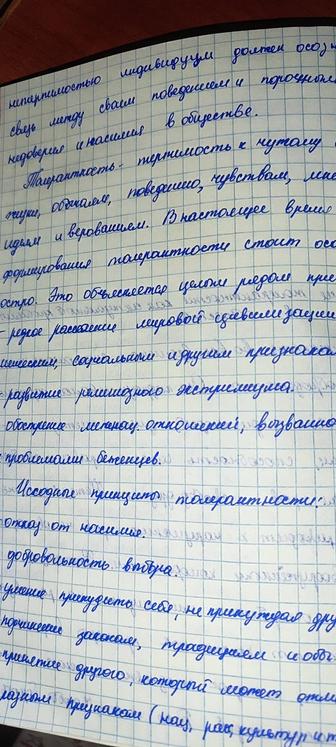 нетерпимостью индивидуум должен осозн
связь между своим поведением и порочным
недоверия и насилия в обществе.
Толерантность - терпимость к чужому
жизни, обычаям, поведению, чувствам, мне
идеям и верованиям. В настоящее время
формирования толерантности стоит осо
остро. Это объясняется целым рядом при
- резкое расслоение мировой цивилизации
ическим, социальным и другим признакам
- развитие религиозного экстремизма.
обострение межнац. отношений, вызванно
проблемами беженцев.
Исходные принципы толерантности:
отказ от насилия.
добровольность выбора.
умение принудить себя, не принуждая дру
подчинение законам, традициям и обы
принятие другого, который может отли
разным признакам (нац, рас, культур и т